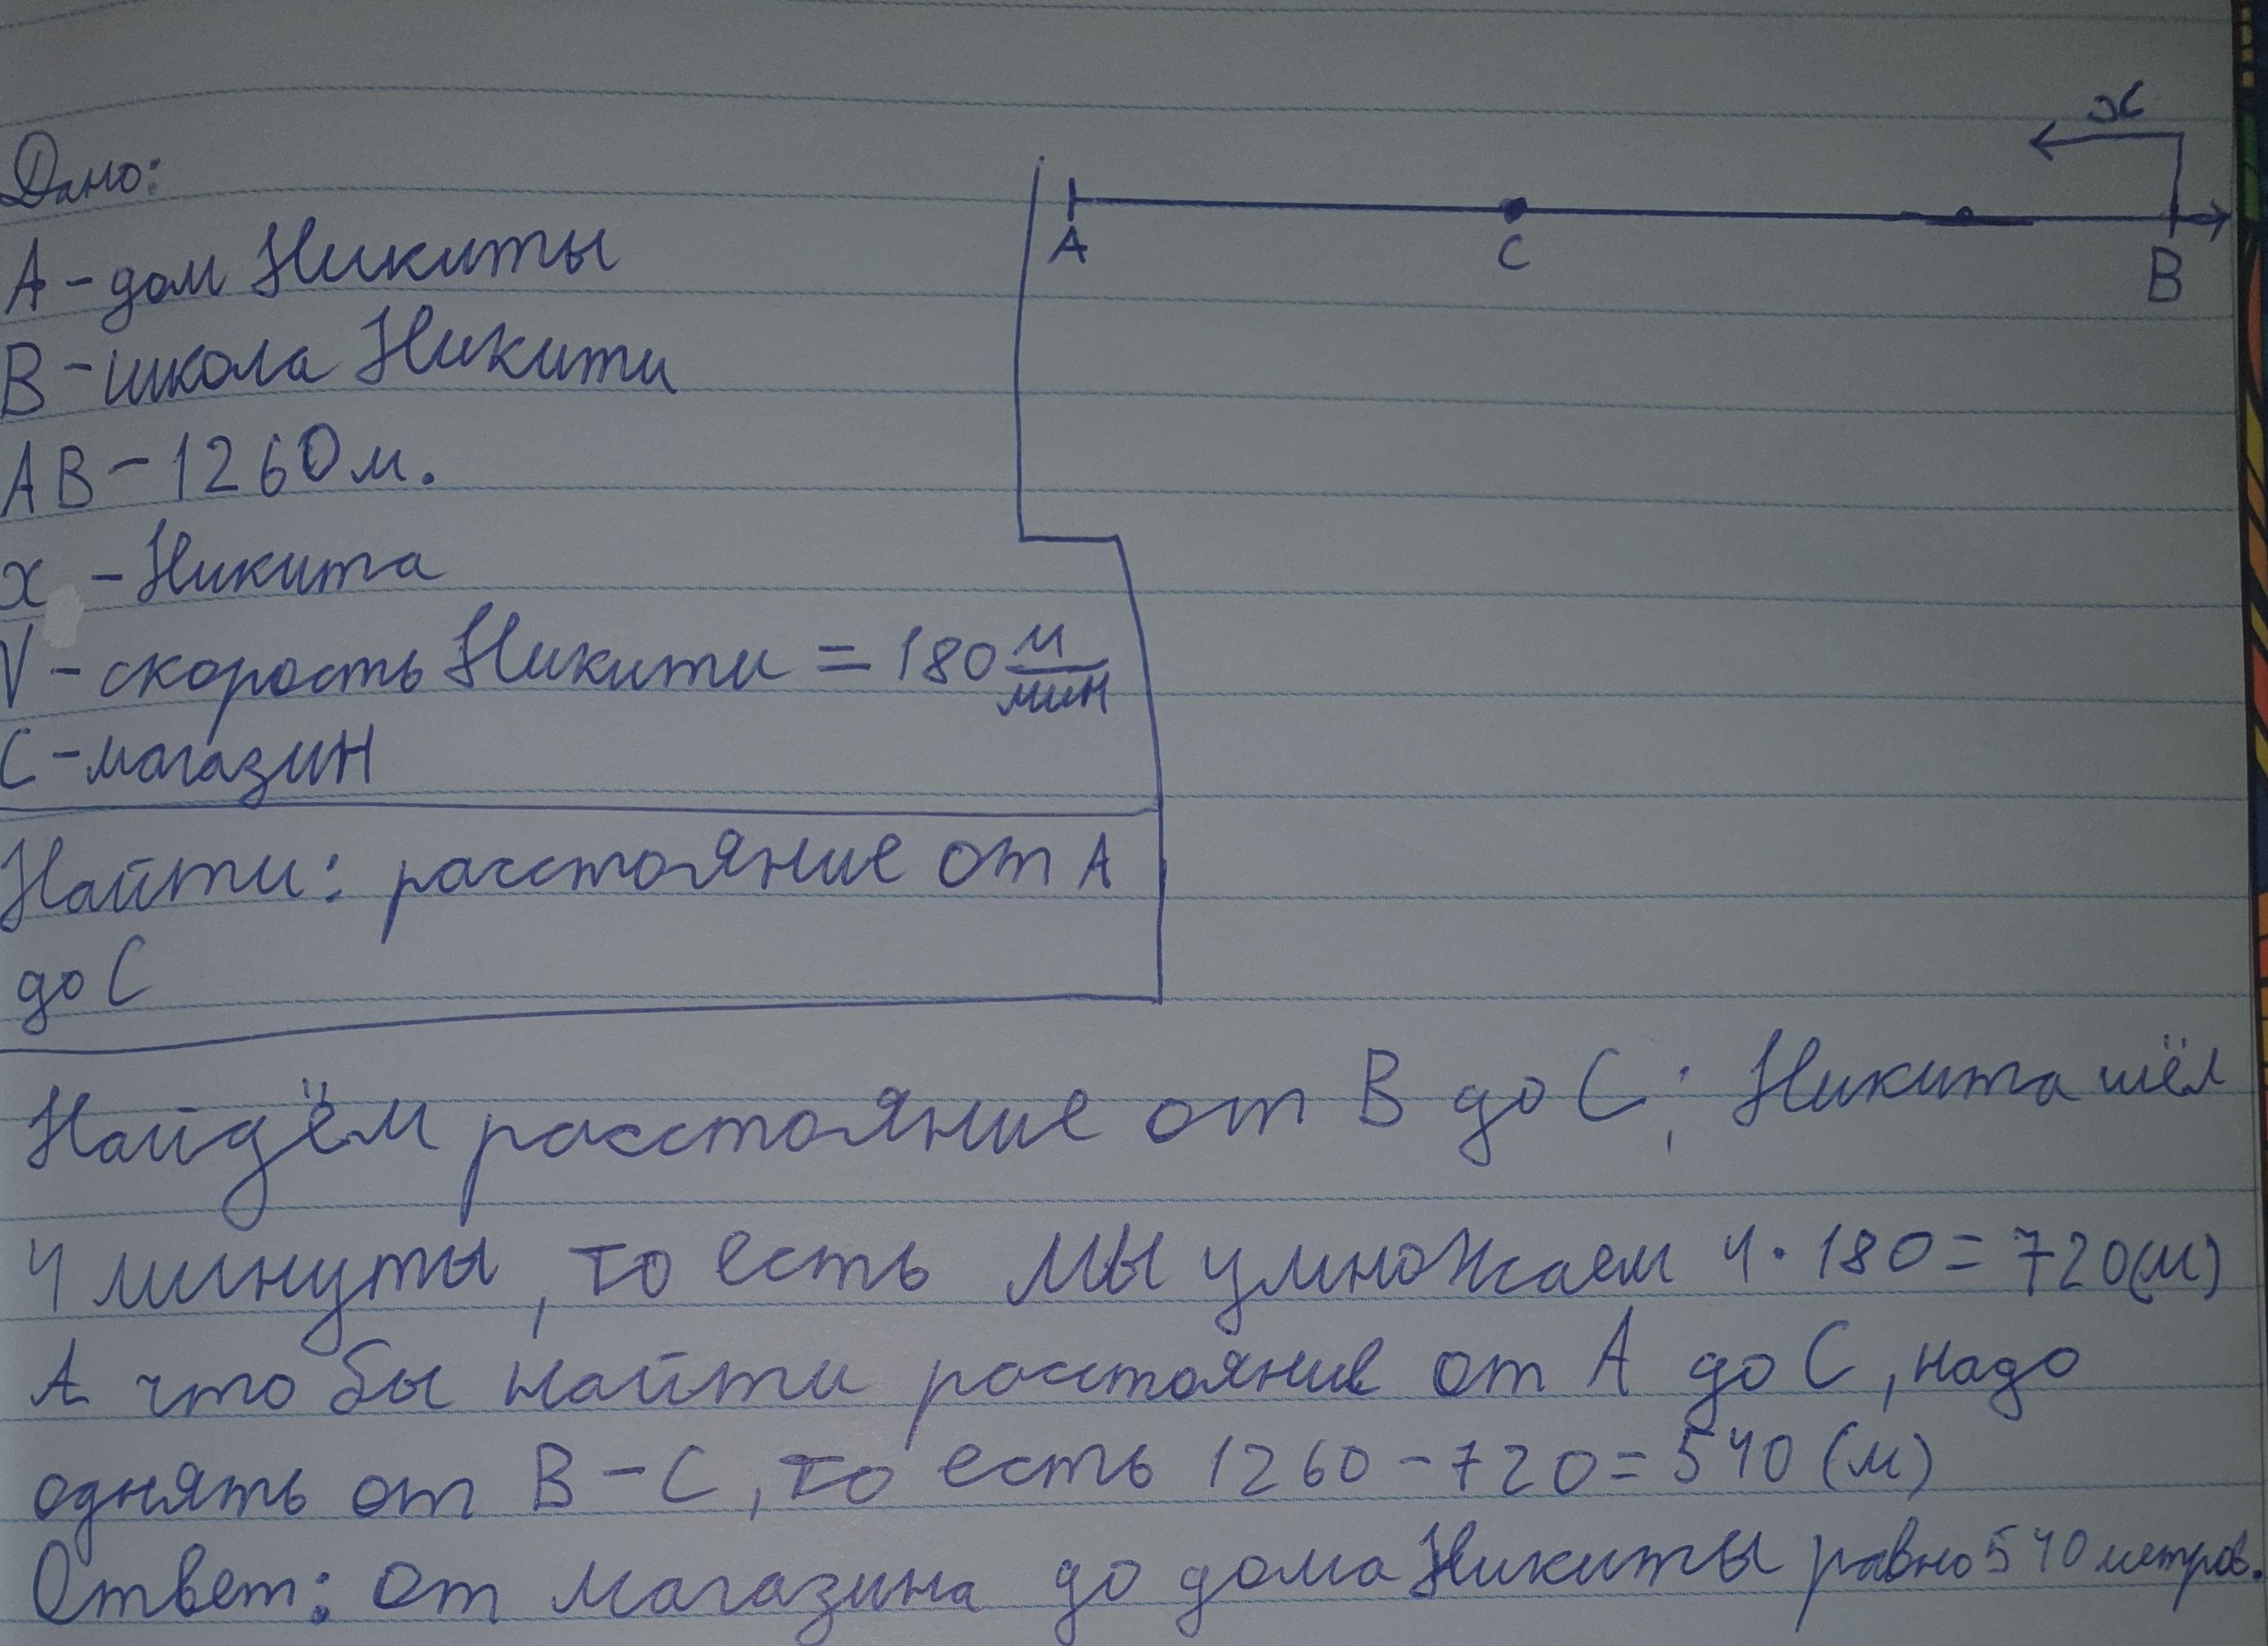 Дано:
А - дом Никиты
В - школа Никити
АВ - 1260 м.
х - Никита
V - скорость Никити = 180 м/мин
С - магазин
Найти: расстояние от А
до С
х
А
С
В
Найдём расстояние от В до С; Никита шёл
4 минуты, то есть мы умножаем 4 · 180 = 720(м)
А что бы найти расстояние от А до С, надо
однять от В - С, то есть 1260 - 720 = 540 (м)
Ответ: от магазина до дома Никиты равно 540 метров.